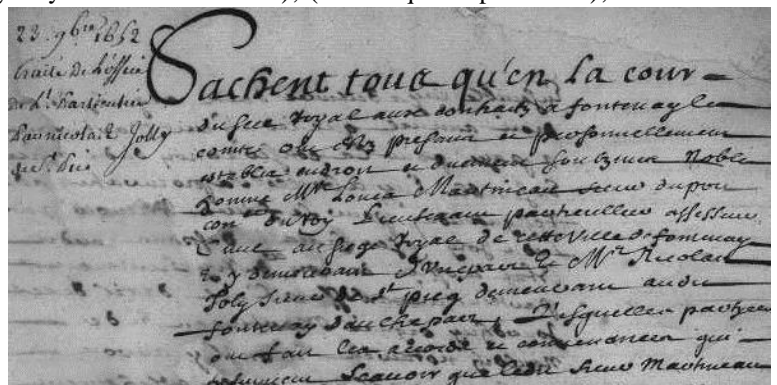 23 9bre 1652
traité de l'office
de Lt Particulier
Par nicolas Jolly
Sachent tous qu'en la cour
du seel royal aux contractz a fontenay le
comte ont esté presans et personnellement
establis endroit et duement soubzmis Noble
homme Mre Louis Martineau sieur du port
coner du roy Lieutenant particullier assesseur
au siege royal de cette ville de fontenay
y demeurant d'une part et Mre Nicolas
Joly sieur de st pieq demeurant audit
fontenay d'aultre part, Lesquelles partyes
ont fait les accords et convenances qui
scavoir que ledit sieur Martineau